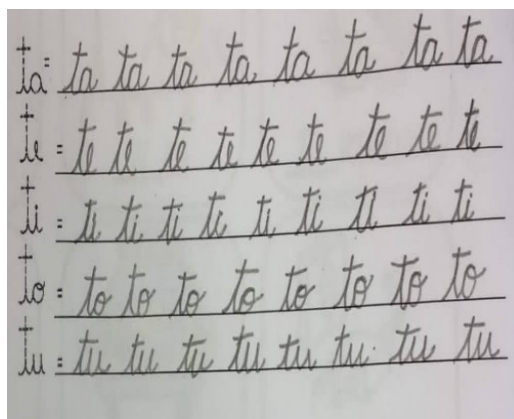 ta = ta ta ta ta ta ta ta ta
te = te te te te te te te te te
ti = ti ti ti ti ti ti ti ti ti
to = to to to to to to to to
tu = tu tu tu tu tu tu tu tu